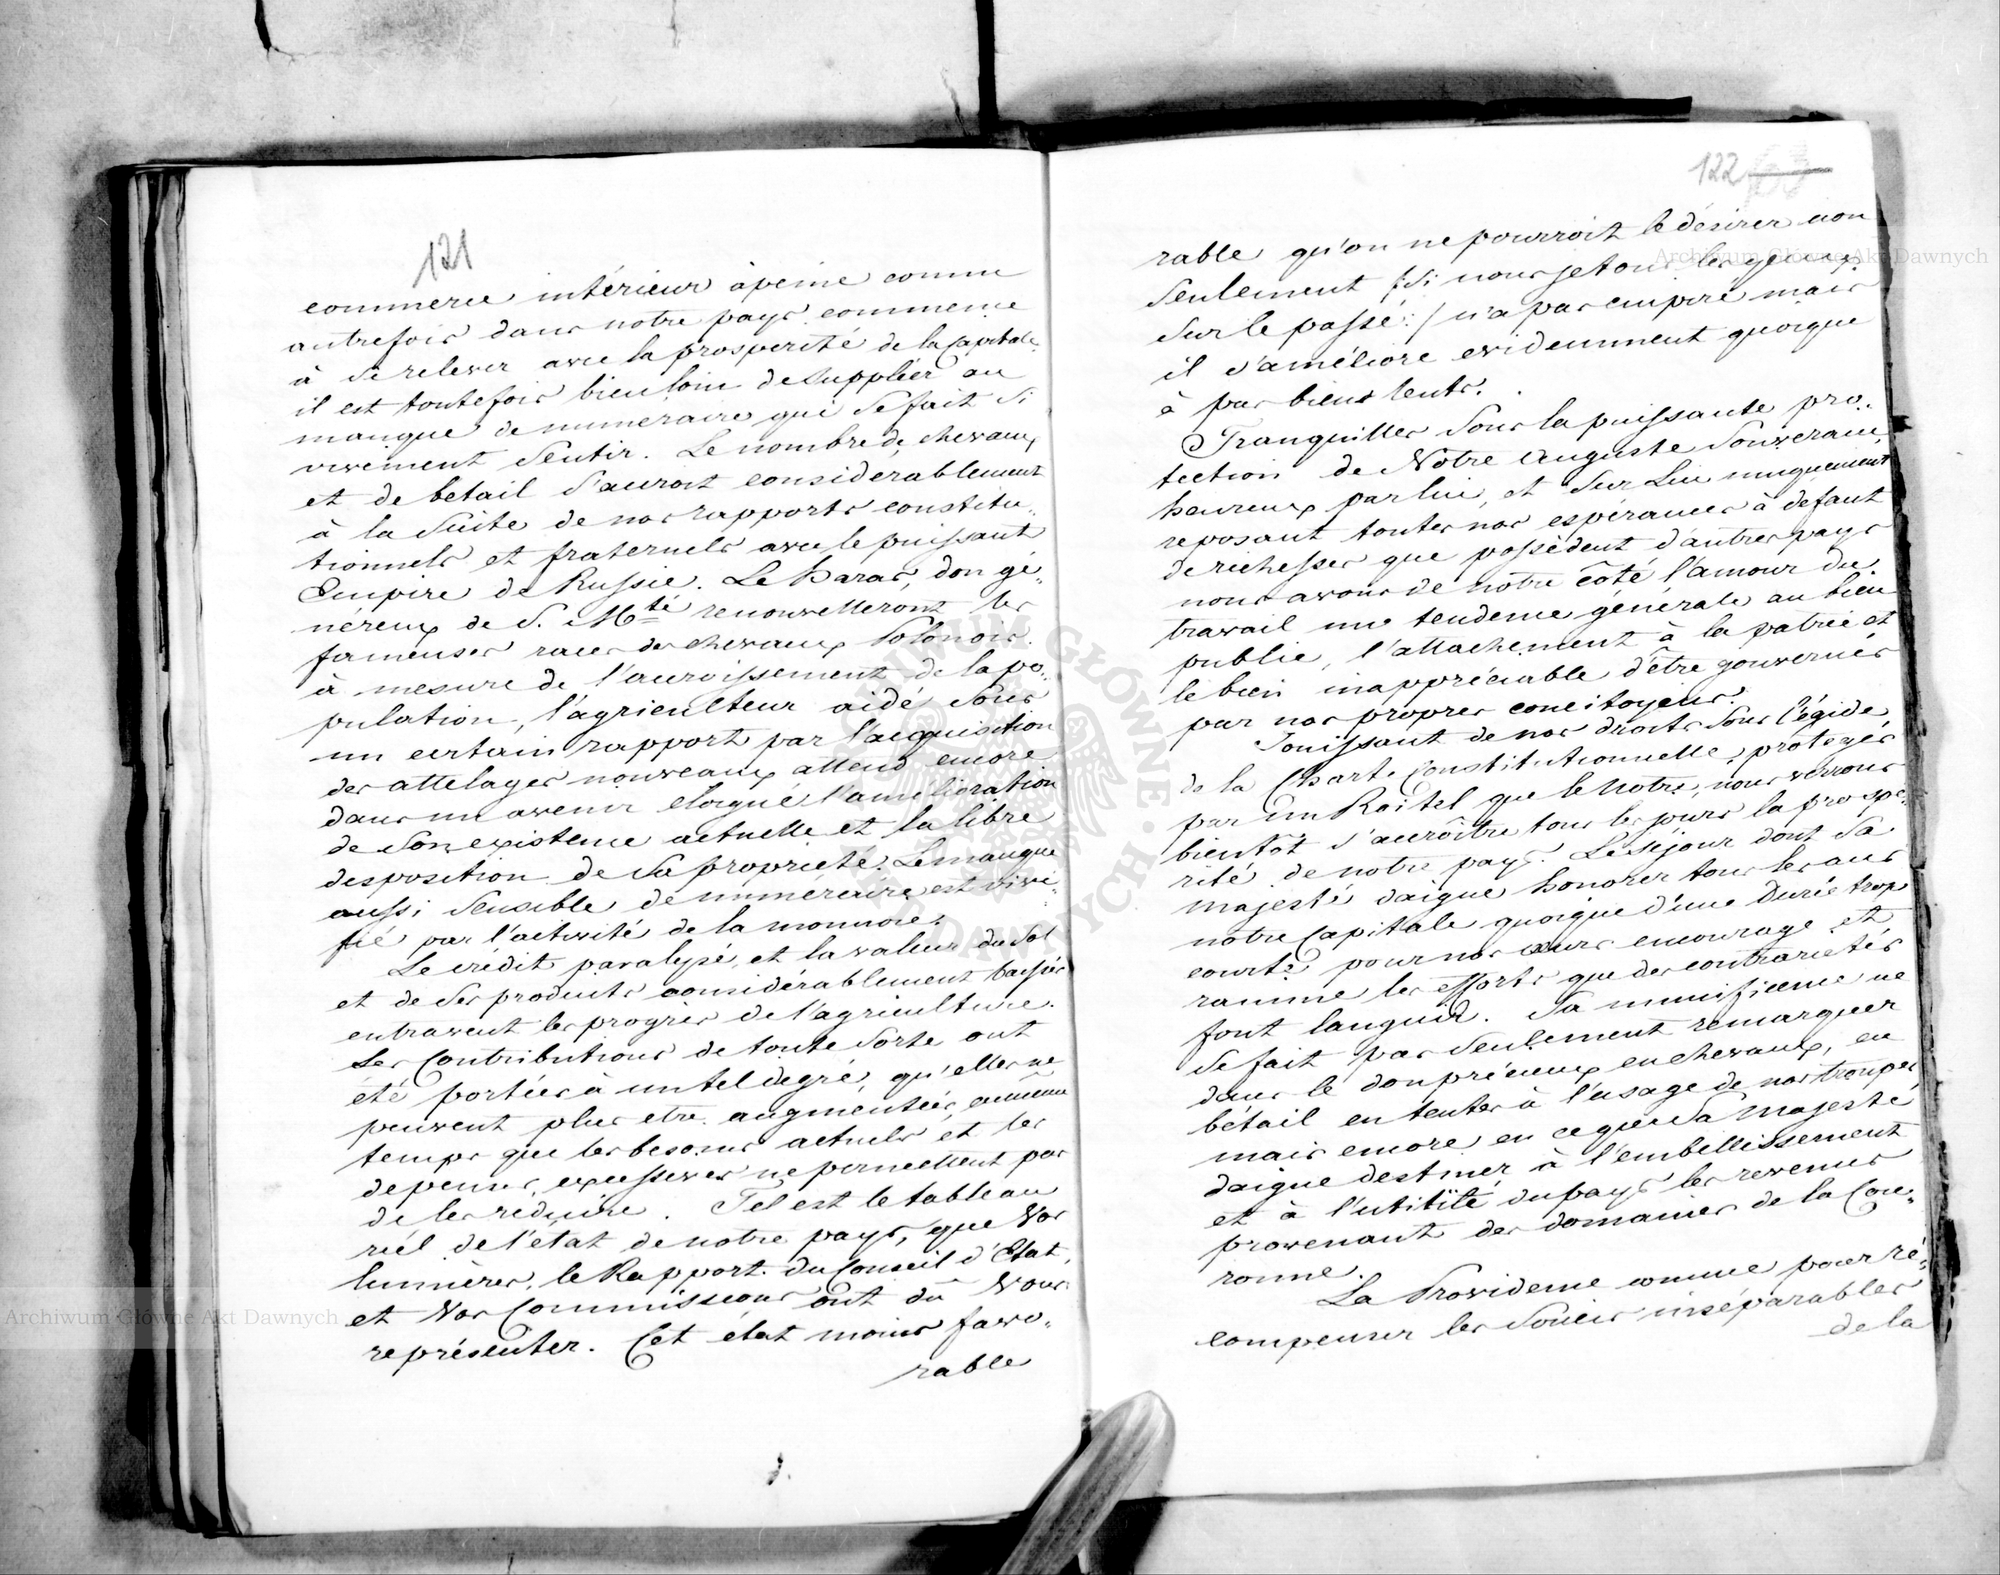 121
commerce intérieur à peine connu
autrefois dans notre pays commence
à se relever avec la prosperité de la Capitale,
il est toutefois bien loin de suppléer au
manque de numeraire qui se fait si
vivement sentir. Le nombre de chevaux
et de betail s'accroit considerablement
à la suite de nos rapports constitu„
tionnels et fraternels avec le puissant
Empire de Russie. Le haras, don gé„
néreux de S. Mté renouvelleront les
fameuses races des chevaux Polonois.
à mesure de l'accroissement de la po„
pulation, l'agriculteur aidé sous
un certain rapport par l'acquisition
des attelages nouveaux attend encore
dans un avenir eloigné l'amélioration
de son existence actuelle et la libre
desposition de sa propriété. Le manque
aussi sensible de numéraire est vivi„
fié par l'activité de la monnoie.
Le crédit paralysé, et la valeur du sol
et de ses produits considérablement baissés
entravent les progrès de l'agriculture.
Les Contributions de toute sorte ont
été portées à un tel degré, qu'elles ne
peuvent plus etre augmentées, en même
temps que les besoins actuels et les
depenses excessives ne permettent pas
de les réduire. Tel est le tableau
réel de l'état de notre pays, que Vos
lumières, le Rapport du Conseil d'Etat,
et Vos Commissions ont dû Vous
représenter. Cet état moins favo„
rable
122
rable qu'on ne pourroit le désirer non
seulement /:si nous jetons les yeux
sur le passé:/ n'a pas empiré mais
il s'améliore evidemment quoique
à pas biens lents.
Tranquilles sous la puissante pro„
tection de Notre Auguste Souverain,
heureux par lui, et sur Lui uniquement
reposant toutes nos espérances à defaut
de richesses que possèdent d'autres pays
nous avons de notre côté l'amour du
travail une tendence générale au bien
public, l'attachement à la patrie et
le bien inappréciable d'être gouvernés
par nos propres concitoyens.
Jouissant de nos droits sous l'égide
de la Charte Constitutionnelle, protégés
par Un Roi tel que le Notre, nous verrons
bientôt s'accroître tous les jours la prospe„
rité de notre pays. Le séjour dont Sa
Majesté daigne honorer tous les ans
notre Capitale quoique d'une durée trop
courte pour nos cœurs encourage et
ranime les efforts que des contrarietés
font languir. Sa munificence ne
se fait pas seulement remarquer
dans le don précieux en chevaux, en
bétail en tentes à l'usage de nos troupes
mais encore en ce que Sa Majesté
daigne destiner à l'embellissement
et à l'utilité du pays les revenus
provenant des domaines de la Cou„
ronne.
La Providence comme pour ré„
compenser les soucis inséparables
de la
Archiwum Główne Akt Dawnych
Archiwum Główne Akt Dawnych